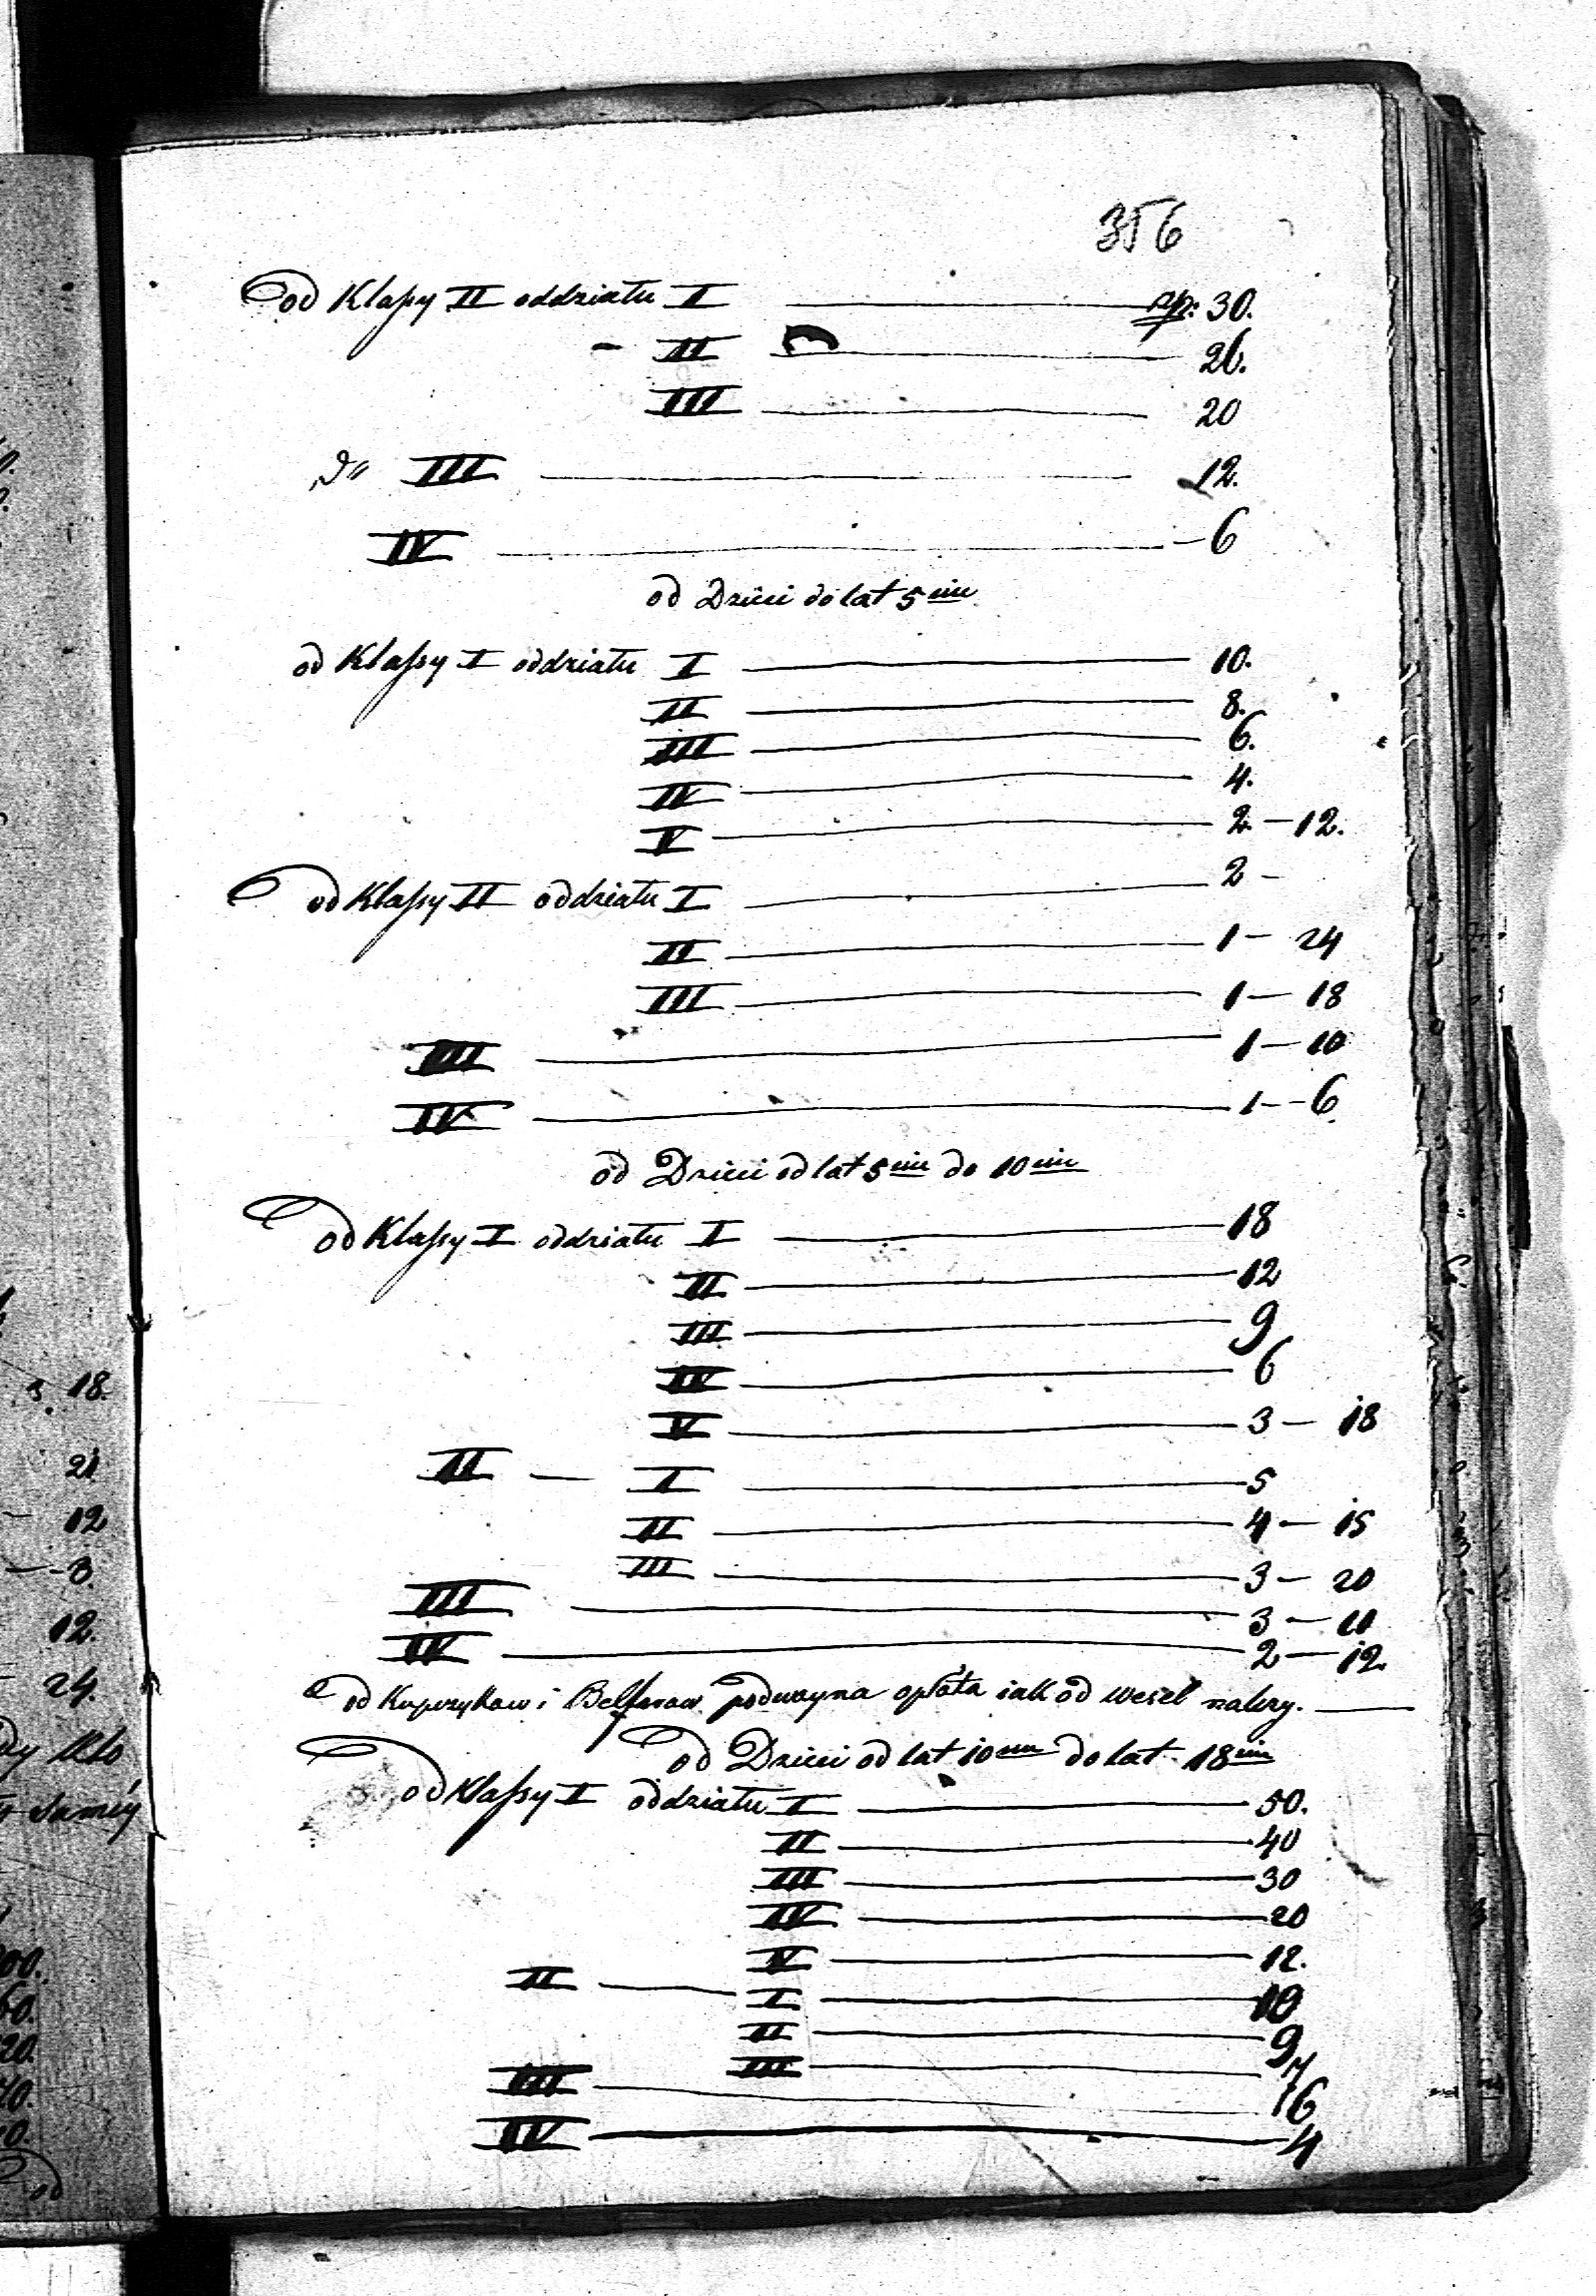 356
od Klassy II oddziału I — zp: 30.
- II — 26.
III — 20
do III — 12.
IV — 6
od Dzieci do lat 5ciu
od Klassy I oddziału I — 10.
II — 8.
III — 6.
IV — 4.
V — 2 - 12.
od Klassy II oddziału I — 2 -
II — 1 - 24
III — 1 - 18
III — 1 - 10
IV — 1 - 6
od Dzieci od lat 5ciu do 10ciu
od Klassy I oddziału I — 18
II — 12
III — 9
IV — 6
V — 3 - 18
II — I — 5
II — 4 - 15
III — 3 - 20
III — 3 -
IV — 2 - 12.
od i podwoyna opłata iak od wesel należy. —
od Dzieci od lat 10ciu do lat 18ciu
od Klassy I oddziału I — 50.
II — 40
III — 30
IV — 20
V — 12.
II — I — 10
II — 9
III — 7
III — 6
IV — 4
18.
21
12
- 3.
12.
24.